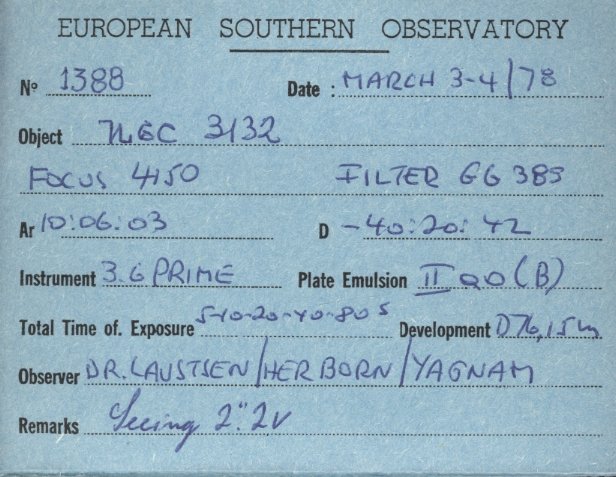 EUROPEAN SOUTHERN OBSERVATORY
Nº 1388 Date : MARCH 3-4/78
Object NGC 3132
FOCUS 4150 FILTER GG 385
Ar 10:06:03 D -40:20:42
Instrument 3.6 PRIME Plate Emulsion II a O (B)
Total Time of. Exposure 5-10-20-40-80 s Development D76, 15m
Observer DR. LAUSTSEN/HERBORN/YAGNAM
Remarks Seeing 2".2V